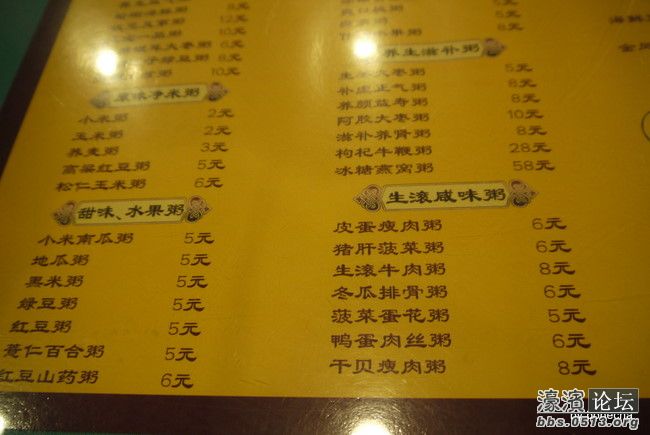 8元
12元
10元
6元
8元
10元
原味净米粥
小米粥 2元
玉米粥 2元
荞麦粥 3元
高粱红豆粥 5元
松仁玉米粥 6元
甜味、水果粥
小米南瓜粥 5元
地瓜粥 5元
黑米粥 5元
绿豆粥 5元
红豆粥 5元
薏仁百合粥 5元
红豆山药粥 6元
8元
8元
6元
养生滋补粥
大枣粥 5元
补虚正气粥 8元
养颜益寿粥 8元
阿胶大枣粥 10元
滋补养肾粥 8元
枸杞牛鞭粥 28元
冰糖燕窝粥 58元
生滚咸味粥
皮蛋瘦肉粥 6元
猪肝菠菜粥 6元
生滚牛肉粥 8元
冬瓜排骨粥 6元
菠菜蛋花粥 5元
鸭蛋肉丝粥 6元
干贝瘦肉粥 8元
海鲜
濠滨论坛
bbs.0513.org